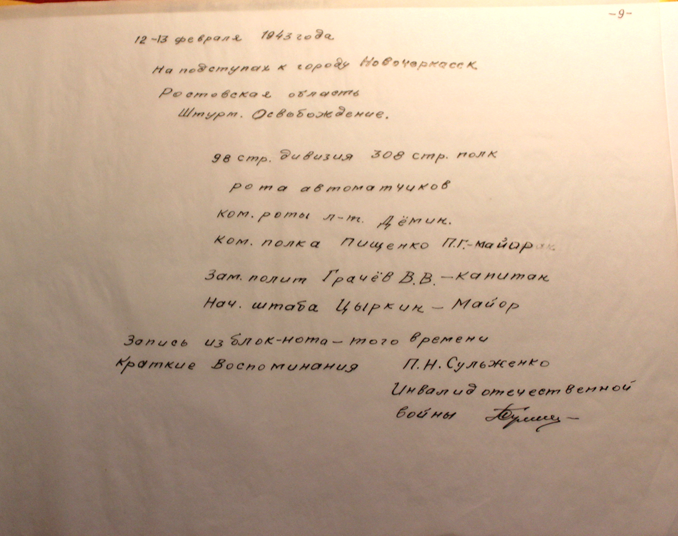 -9-
12-13 февраля 1943 года
На подступах к городу Новочеркасск
Ростовская область
Штурм. Освобождение.
98 стр. дивизия 308 стр. полк
рота автоматчиков
ком. роты л-т. Дёмин.
ком. полка Пищенко П.Г.-майор
Зам. полит Грачёв В.В. - капитан
Нач. штаба Цыркин - Майор
Запись из блок-нота - того времени
Краткие Воспоминания П.Н. Сульженко
Инвалид отечественной
войны